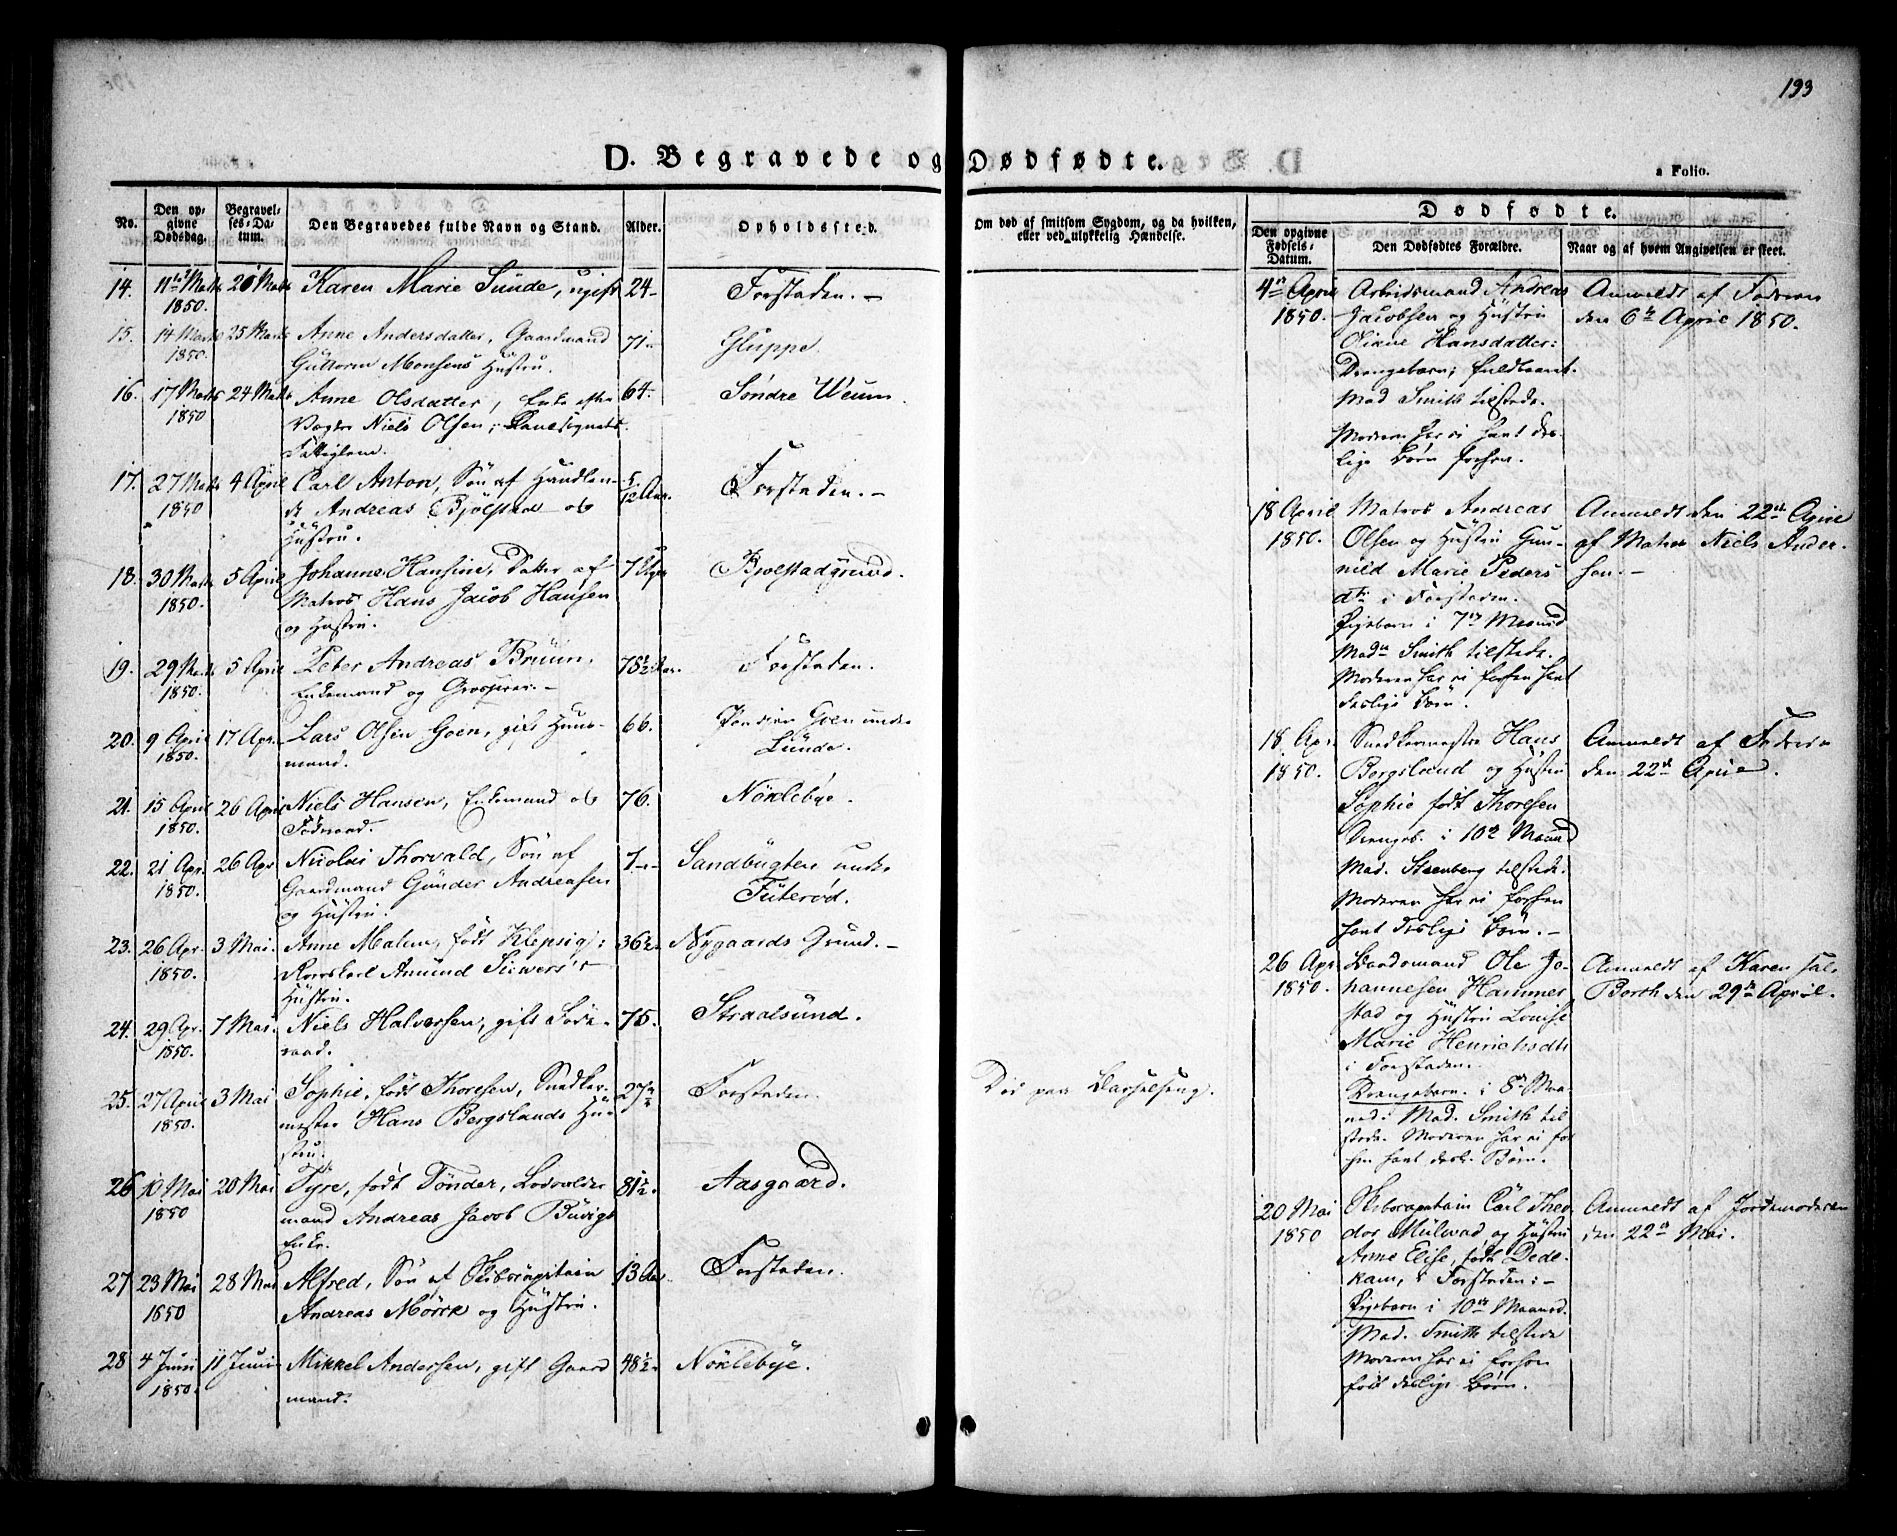 193
D. Begravede og Dødfødte.
a Folio.
No.
Den op-
givne
Dødsdag.
Begravel-
ses-Da-
tum.
Den Begravedes fulde Navn og Stand.
Alder.
Opholdssted.
Om død af smitsom Sygdom, og da hvilken,
eller ved ulykkelig Hændelse.
Dødfødte.
Den opgivne
Fødsels-
Datum.
Den Dødfødtes Forældre.
Naar og af hvem Angivelsen er skeet.
14. 11te Marts 20 Marts Karen Marie Sunde, ugift 24 Forstaden.
1850.
15. 14 Marts 25 Marts Anne Andersdatter, Gaardmand 71 Gluppe.
1850. Guttorm Monsens Hustru.
16. 17 Marts 24 Marts Anne Olsdatter, Enke efter 64 Søndre Weum.
1850 Niels Olsen,
17. 27 Marts 4 April Carl Anton, Søn af Handlen- 5/12 Aar. Forstaden.
1850 de Andreas Bjølstad og
Hustru.
18. 30 Marts 5 April Johanne Hansine, Datter af 7 Bjølstadgrund.
1850. Matros Hans Jacob Hansen
og Hustru.
19. 29 Marts 5 April Peter Andreas Bruun, 78½ Aar. Forstaden.
1850. Enkemand og
20. 9 April 17 Apr. Lars Olsen Goen, gift Huus- 66. Goen under
1850. mand. Lunde.
21. 15 April 26 April Niels Hansen, Enkemand og 76. Nøklebye.
1850. Føderaad.
22. 21 Apr. 26 Apr Nicolai Thorvald, Søn af 7 Sandbugten under
1850. Gaardmand Gunder Andreasen Futerød.
og Hustru.
23. 26 Apr. 3 Mai. Anne Malene, født Klepsig; 36½ Nygaards Grund.
1850. Amund Siewers's
Hustru.
24. 29 Apr. 7 Mai. Niels Halversen, gift Føde- 75. Stralsund.
1850. raad.
25. 27 April 3 Mai Sophie, født Thoresen, Snedker- 27½ Forstaden. Død paa Barselseng.
1850. mester Hans Bergslands Hu-
stru.
26 10 Mai 20 Mai Tyre, født Tønder, 81½. Aasgaard.
1850 mand Andreas Jacob Buvigs
Enke.
27 23 Mai 28 Mai Alfred, Søn af Skibscapitain 13 Aar Forstaden.
1850 Andreas Mørck og Hustru.
28 4 Juni 11 Juni Mikkel Andersen, gift Gaard 48½ Nøklebye.
1850. mand.
4de April Arbeidsmand Andreas Anmeldt af Faderen
1850. Jacobsen og Hustru den 6te April 1850.
Oliane Hansdatter:
Drengebarn; fuldbaaret.
Mad Smith tilstede.
Moderen har ei havt des-
lige Børn forhen.
18 April Matros Andreas Anmeldt den 22de April
1850. Olsen og Hustru Gun- af Matros Niels Ander-
nild Marie Peders- sen.
dtr i Forstaden.
Pigebarn i 7de Maaned
Made Smith tilstede.
Moderen har ei forhen havt
deslige Børn.
18 Apr. Snedkermester Hans Anmeldt af Faderen
1850. Bergsland og Hustru den 22de April.
Sophie født Thoresen
Drengeb. i 10de Maaned
Mad. Steenberg tilstede.
Moderen har ei forhen
havt deslige Børn.
26 Apr. Ole Jo- Anmeldt af Karen
1850. hannesen Hammer- Borth den 29de April.
stad og Hustru Lovise
Marie Henrichsdtr
i Forstaden.
Drengebarn i 8de Maa-
ned. Mad. Smith til
stede. Moderen har ei for
hen havt desl. Børn.
20 Mai Skibscapitain Carl Theo- Anmeldt af Jordemoderen
1850 dor Mulvad og Hustru den 22de Mai.
Anne Elise, født Dede-
kam, i Forstaden:
Pigebarn i 10de Maaned.
Mad. Smith tilstede
Moderen har ei forhen
født deslige Børn.